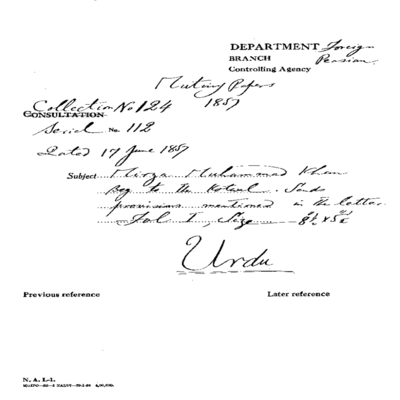 DEPARTMENT Foreign
BRANCH Persian
Controlling Agency
Mutiny Papers
Collection No 124 1857
CONSULTATION
Serial No. 112
Dated 17 June 1857
Subject Mirza Muhammad Khan
to the Kotwal. Send
provisions mentioned in the letter.
Fol 1, Size
Urdu
Previous reference
Later reference
N. A. I.-1.